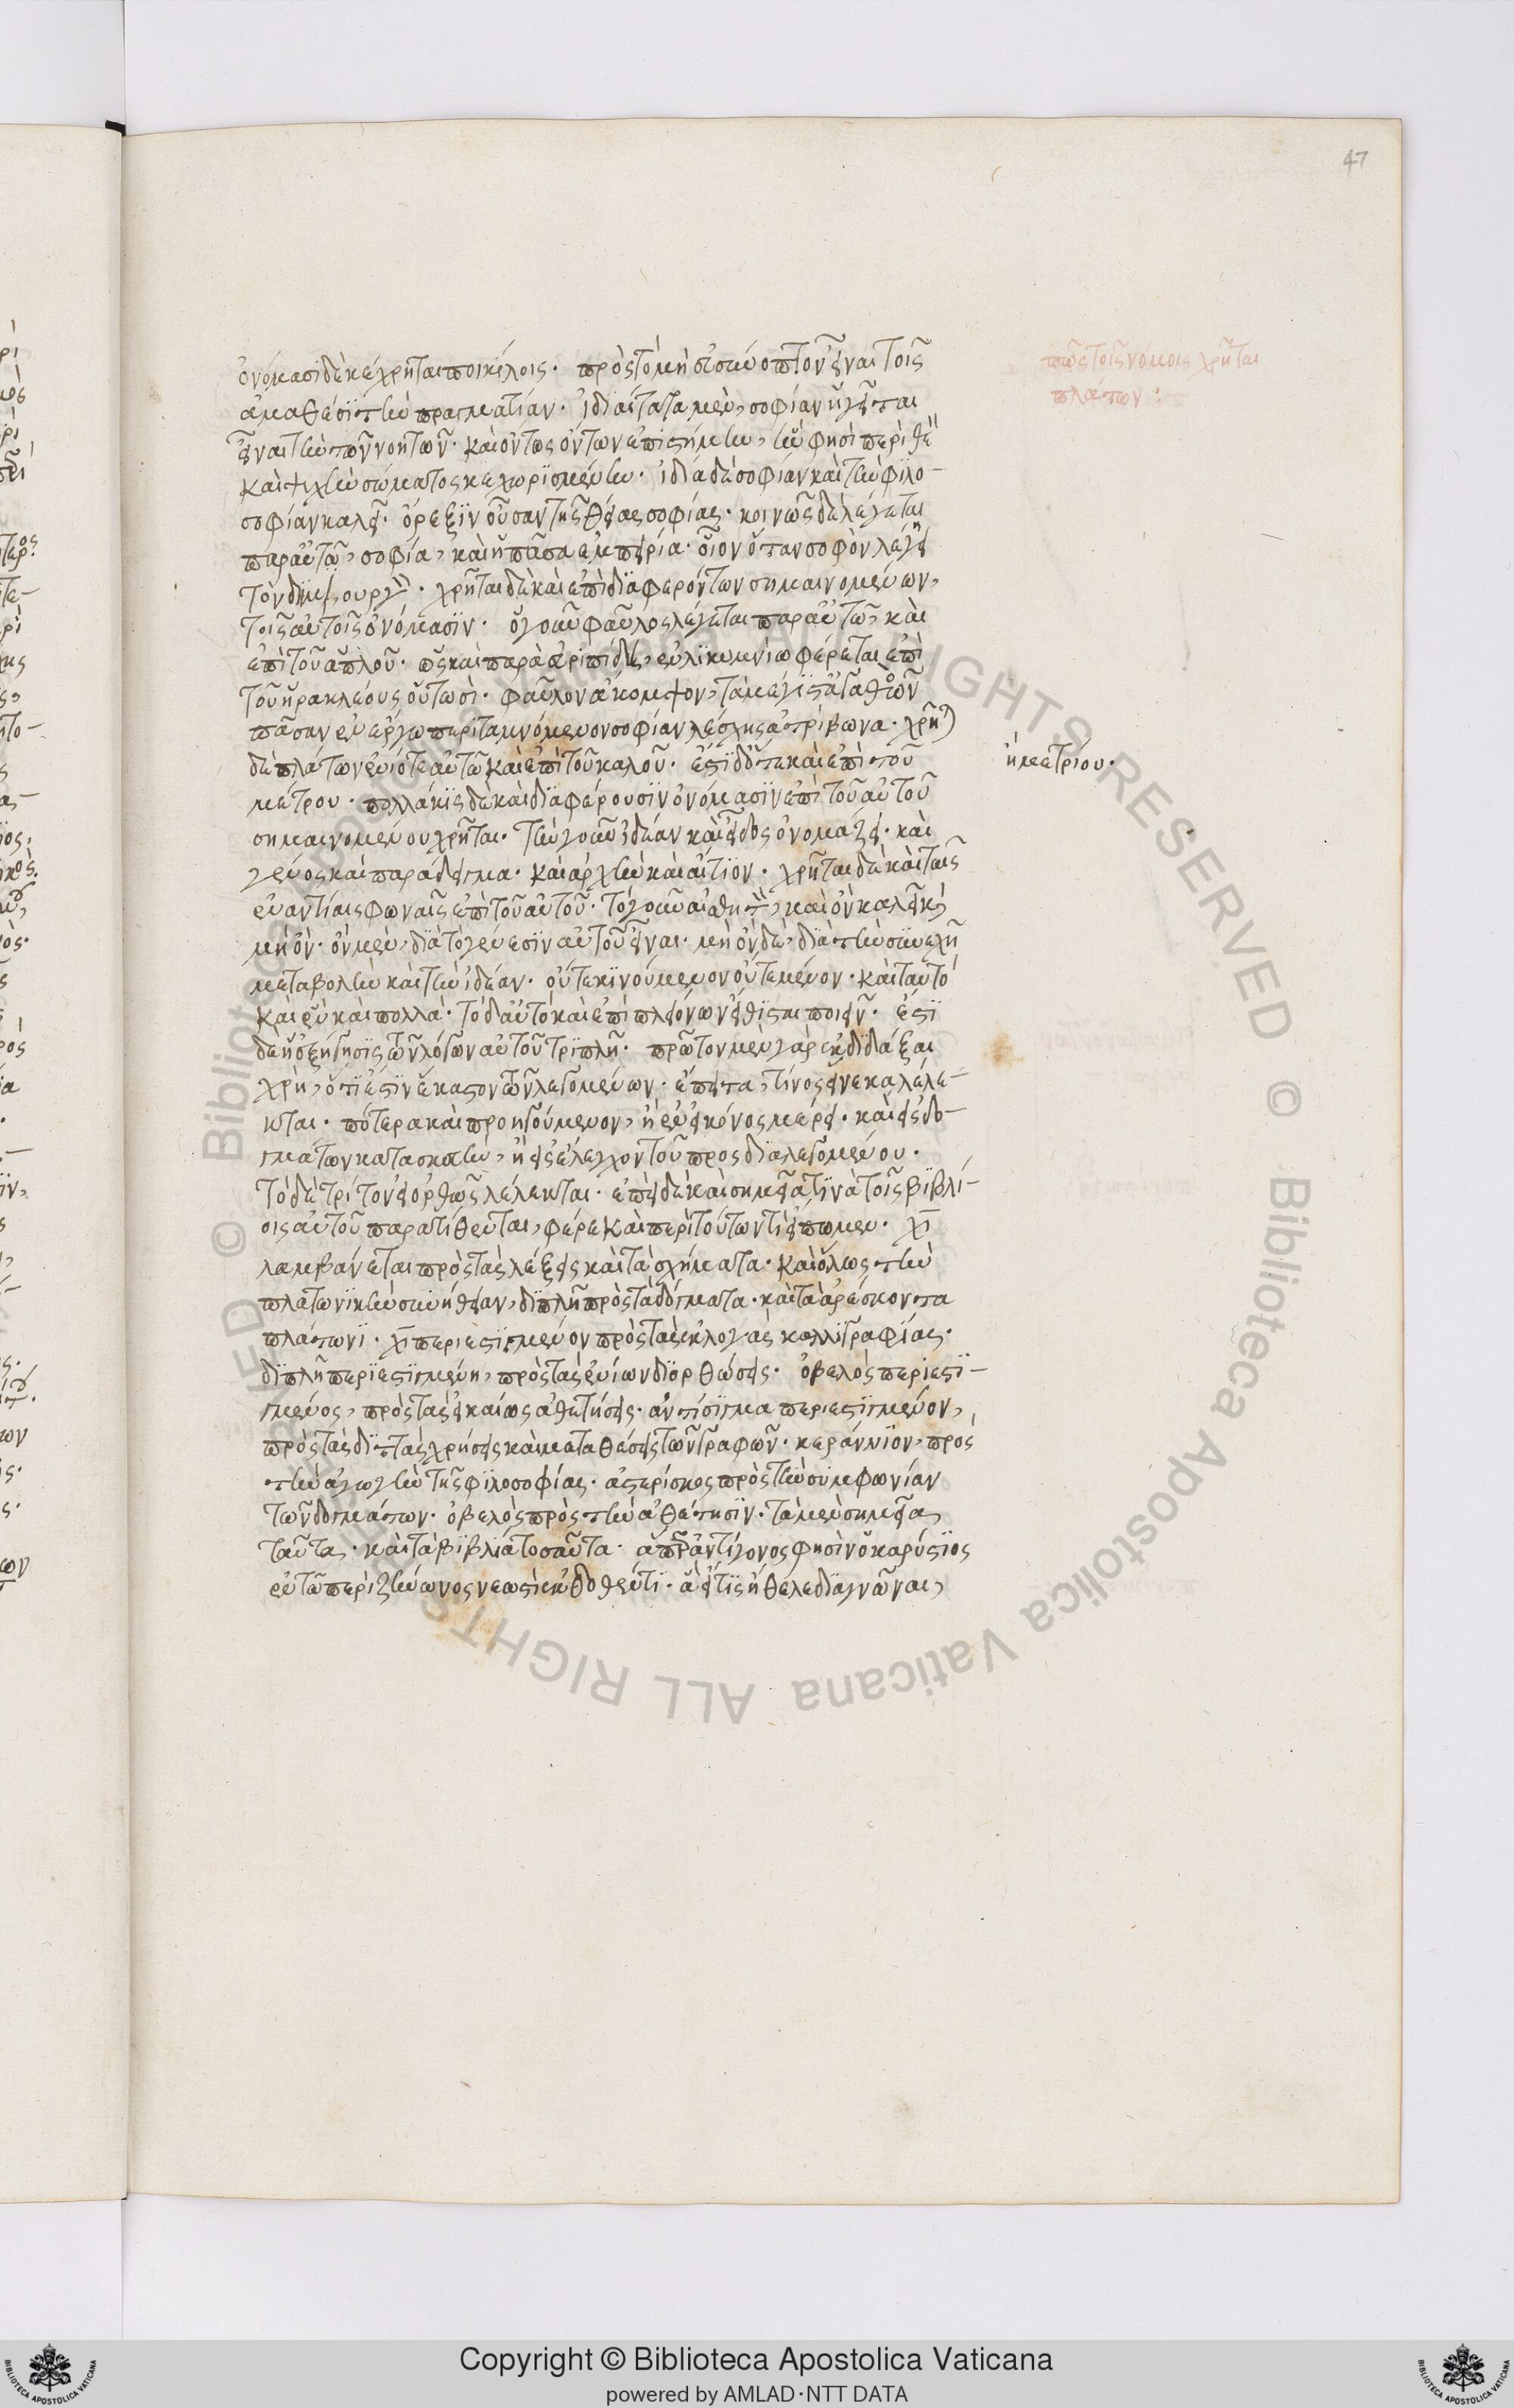 47
ὀνόμασι δὲ κέχρηται ποικίλοις· πρὸς τὸ μὴ εὐσύνοπτον εἶναι τοῖς
πῶς τοῖς νόμοις χρῆται
πλάτων:
ἀμαθέσι τὴν πραγματίαν· ἰδιαίτατα μὲν, σοφίαν ἡγεῖται
εἶναι τὴν τῶν νοητῶν· καὶ ὄντως ὄντων ἐπιστήμην, ἥν φησι περὶ θῦ
καὶ ψυχὴν σώματος κεχωρισμένην· ἰδία δὲ σοφίαν καὶ τὴν φιλο-
σοφίαν καλεῖ· ὄρεξιν οὖσαν τῆς θείας σοφίας· κοινῶς δὲ λέγεται
παρ αὐτῶ, σοφία, καὶ ἡ πᾶσα ἐμπειρία· οἷον ὅταν σοφὸν λέγη
τὸν δημιουργόν· χρῆται δὲ καὶ ἐπὶ διαφερόντων σημαινομένων,
τοῖς αὐτοῖς ὀνόμασιν· ὁ γοῦν φαῦλος λέγεται παρ αὐτῶ, καὶ
ἐπὶ τοῦ ἁπλοῦ· ὡς καὶ παρὰ εὐριπίδη, ἐν λικυμνίω φέρεται ἐπὶ
τοῦ ἡρακλέους οὕτωσί· φαῦλον ἄκομψον, τὰ μέγιστα ἀγαθὸν
πᾶσαν ἐν ἔργω περιταμνόμενον σοφίαν λέσχης ἀτρίβωνα· χρῆται
δὲ πλάτων ἐνίοτε αὐτῶ καὶ ἐπὶ τοῦ καλοῦ· ἔστι δ ὅτε καὶ ἐπὶ τοῦ
ἢ μετρίου·
μέτρου· πολλάκις δὲ καὶ διαφέρουσιν ὀνόμασιν ἐπὶ τοῦ αὐτοῦ
σημαινομένου χρῆται· τὴν γοῦν ἰδέαν καὶ εἶδος ὀνομάζει· καὶ
γένος καὶ παράδειγμα· καὶ ἀρχὴν καὶ αἴτιον· χρῆται δὲ καὶ ταῖς
ἐναντίαις φωναῖς ἐπὶ τοῦ αὐτοῦ· τὸ γοῦν αἰσθητὸν, καὶ ὂν καλεῖ καὶ
μὴ ὄν· ὂν μὲν, διὰ τὸ γένεσιν αὐτοῦ εἶναι· μὴ ὂν δὲ, διὰ τὴν συνεχῆ
μεταβολὴν καὶ τὴν ἰδέαν· οὔτε κινούμενον οὔτε μένον· καὶ ταυτὸ
καὶ ἓν καὶ πολλά· τὸ δ αὐτὸ καὶ ἐπὶ πλειόνων εἴθισται ποιεῖν· ἔστι
δὲ ἡ ἐξήγησις τῶν λόγων αὐτοῦ τριπλῆ· πρῶτον μὲν γὰρ ἐκδιδάξαι
χρὴ, ὅτι ἐστὶν ἕκαστον τῶν λεγομένων· ἔπειτα, τίνος εἵνεκα λέλε-
κται· πότερα καὶ προηγούμενον, ἢ ἐν εἰκόνος μέρει· καὶ εἰς δο-
γμάτων κατασκευὴν, ἢ εἰς ἔλεγχον τοῦ προσδιαλεγομένου·
τὸ δὲ τρίτον εἰ ὀρθῶς λέλεκται· ἐπεὶ δὲ καὶ σημεῖά τινα τοῖς βιβλί-
οις αὐτοῦ παρατίθενται, φέρε καὶ περὶ τούτων τὶ εἴπωμεν· χῖ
λαμβάνεται πρὸς τὰς λέξεις καὶ τὰ σχήματα· καὶ ὅλως τὴν
πλατωνικὴν συνήθειαν, διπλῆ πρὸς τὰ δόγματα· καὶ τὰ ἀρέσκοντα
πλάτωνι· χῖ περιεστιγμένον πρὸς τὰς ἐκλογὰς καλλιγραφίας·
διπλῆ περιεστιγμένη, πρὸς τὰς ἐνίων διορθώσεις· ὀβελὸς περιεστι-
γμένος, πρὸς τὰς εἰκαίως ἀθετήσεις· ἀντίσιγμα περιεστιγμένον,
πρὸς τὰς διττὰς χρήσεις καὶ μεταθέσεις τῶν γραφῶν· κεραύνιον, πρὸς
τὴν ἀγωγὴν τῆς φιλοσοφίας· ἀστερίσκος πρὸς τὴν συμφωνίαν
τῶν δογμάτων· ὀβελὸς πρὸς τὴν ἀθέτησιν· τὰ μὲν σημεῖα
ταῦτα· καὶ τὰ βιβλία τοσαῦτα· ἅπερ ἀντίγονος φησὶν ὁ καρύστιος
ἐν τῶ περὶ ζήνωνος νεωστὶ ἐκδοθέντι· ἃ εἴ τις ἤθελε διαγνῶναι,
Copyright © Biblioteca Apostolica Vaticana
powered by AMLAD·NTT DATA